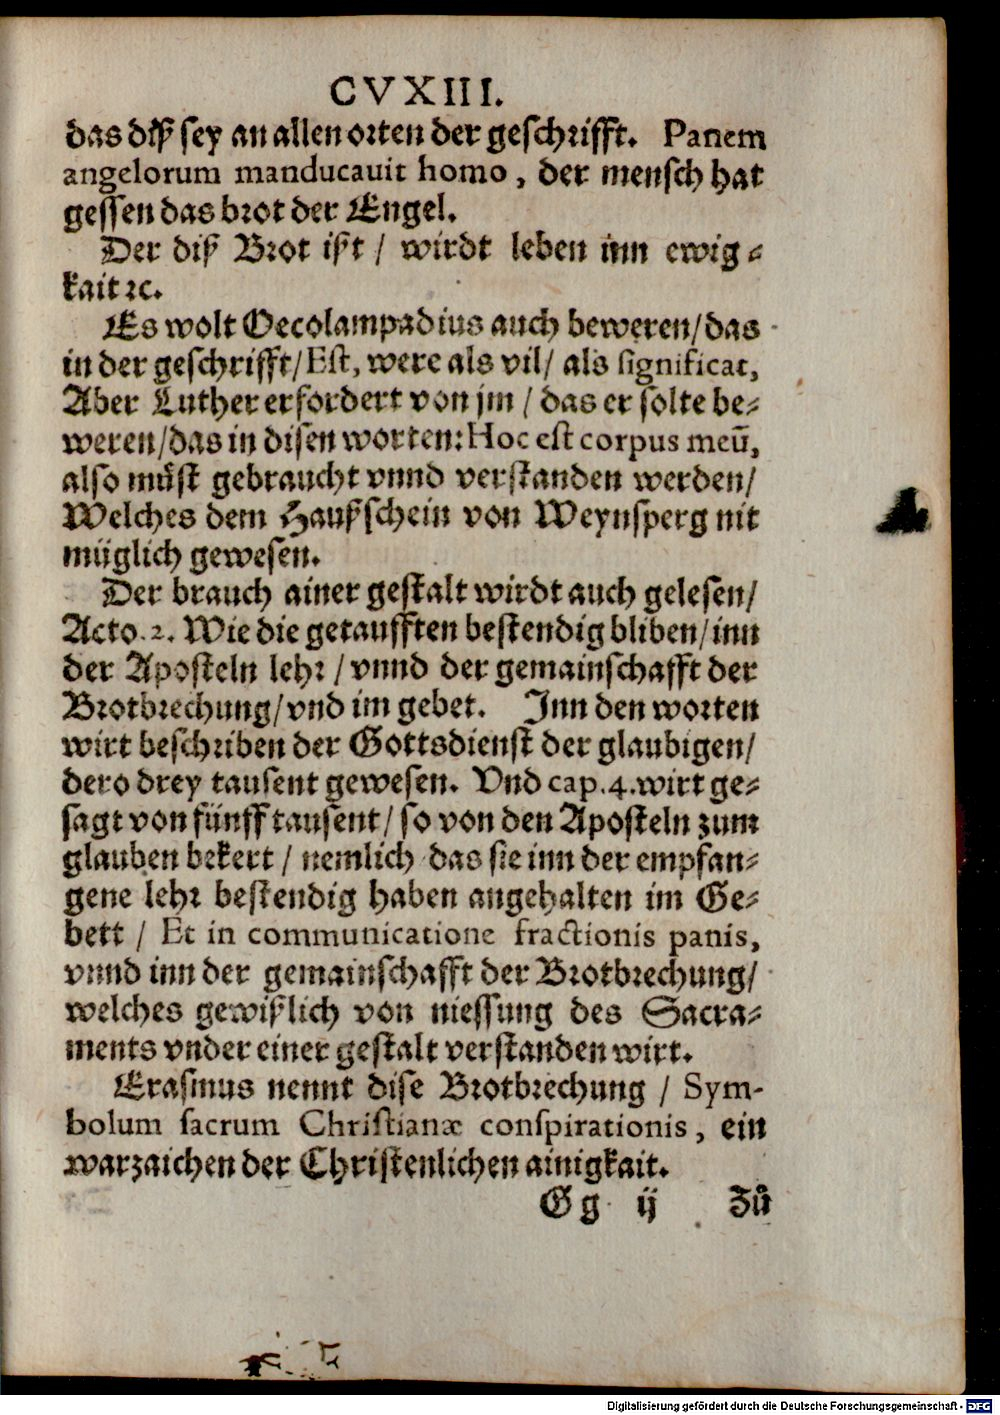 CVXIII.
das diß sey an allen orten der geschrifft. Panem
angelorum manducavit homo, der mensch hat
gessen das brot der Engel.
Der diß Brot ißt / wirdt leben inn ewig⸗
kait ꝛc.
Es wolt Oecolampadius auch beweren/das
in der geschrifft/Est, were als vil/ als significat,
Aber Luther erfordert von jm / das er solte be⸗
weren/das in disen worten: Hoc est corpus meū,
also muͤst gebraucht vnnd verstanden werden/
Welches dem Haußschein von Weynsperg nit
müglich gewesen.
Der brauch ainer gestalt wirdt auch gelesen/
Acto.2. Wie die getaufften bestendig bliben/inn
der Aposteln lehr / vnnd der gemainschafft der
Brotbrechung/vnd im gebet. Inn den worten
wirt beschriben der Gottsdienst der glaubigen/
dero drey tausent gewesen. Vnd cap.4.wirt ge⸗
sagt von fünff tausent/ so von den Aposteln zum
glauben bekert / nemlich das sie inn der empfan⸗
gene lehr bestendig haben angehalten im Ge⸗
bett / Et in communicatione fractionis panis,
vnnd inn der gemainschafft der Brotbrechung/
welches gewißlich von niessung des Sacra⸗
ments vnder einer gestalt verstanden wirt.
Erasmus nennt dise Brotbrechung / Sym-
bolum sacrum Christianæ conspirationis, ein
warzaichen der Christenlichen ainigkait.
Gg ij Zuͦ
Digitalisierung gefördert durch die Deutsche Forschungsgemeinschaft - DFG